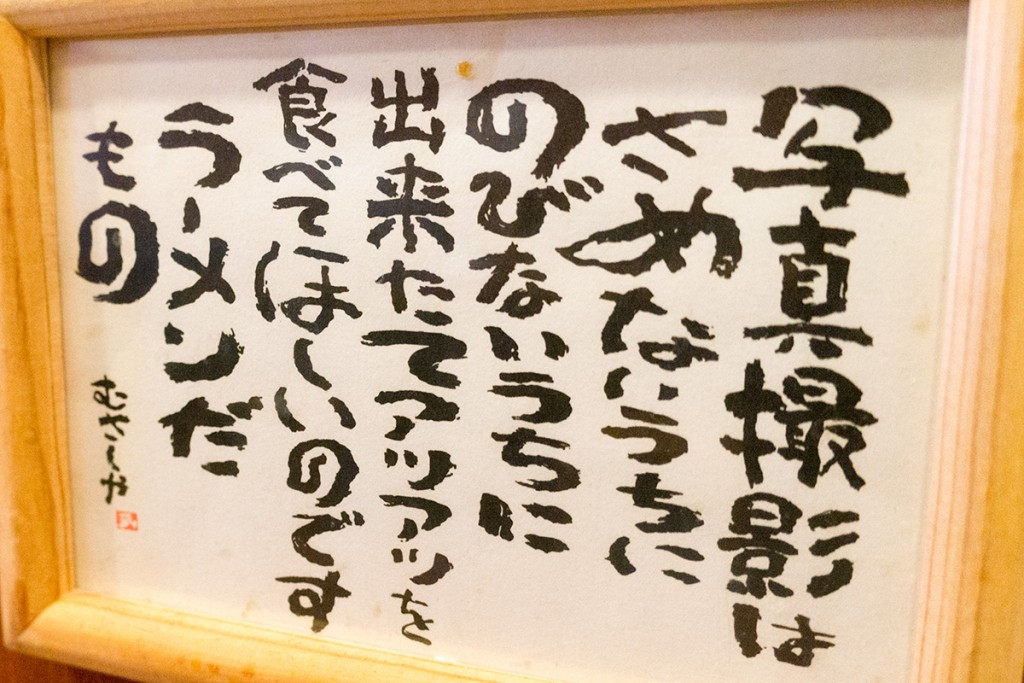 写真撮影は
さめないうちに
のびないうちに
出来たてアツアツを
食べてほしいのです
ラーメンだ
もの
むさしや